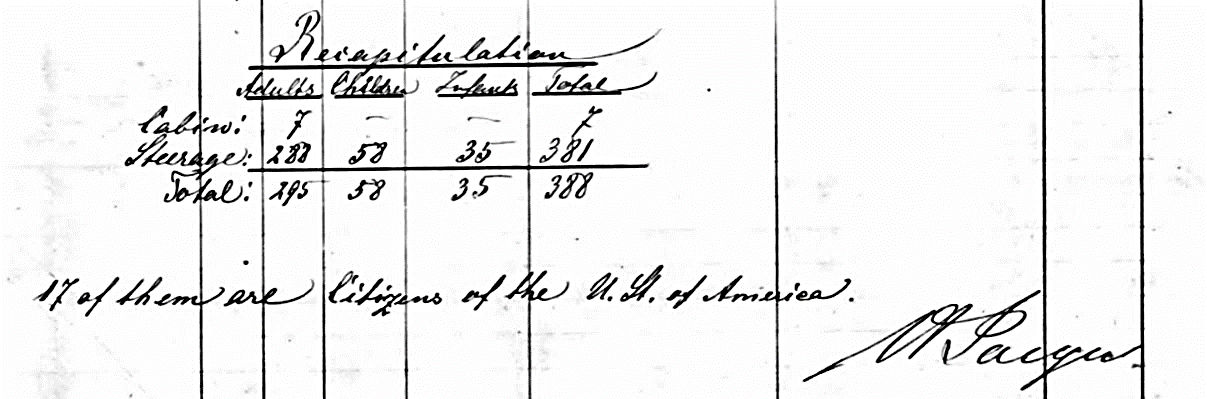 Recapitulation
Adults Children Infants Total
Cabin: 7 — — 7
Steerage: 288 58 35 381
Total: 295 58 35 388
17 of them are Citizens of the U. St. of America.